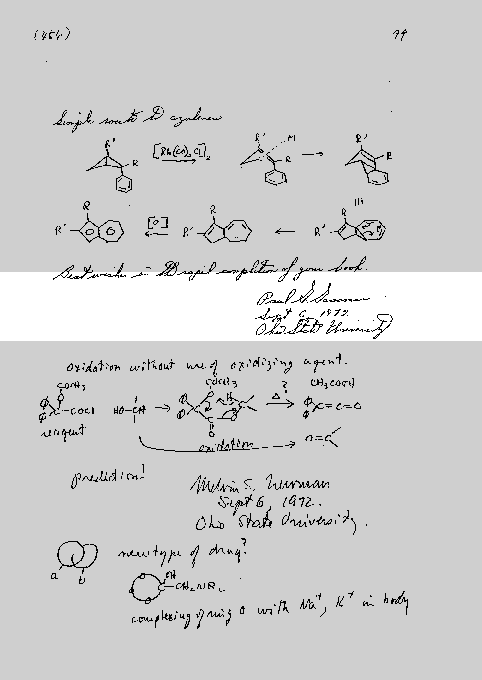 (454) 99
Simple route to azulenes
R' R' M R'
[Rh(CO)2Cl]2
R R R
R R R
R' [O] R' R'
Best wishes in the rapid completion of your book.
Paul G. Gassman
Sept 6, 1972
Ohio State University
oxidation without use of oxidizing agent.
COCH3 COCH3 ? CH3COOH
φ COCl HO-CH φ H Δ φ C=C=O
reagent
oxidation O=C
prediction!
Melvin S. Newman
Sept 6, 1972.
Ohio State University.
new type of drug?
a b
OH
CH2NR2
complexing of ring O with Na+, K+ in body